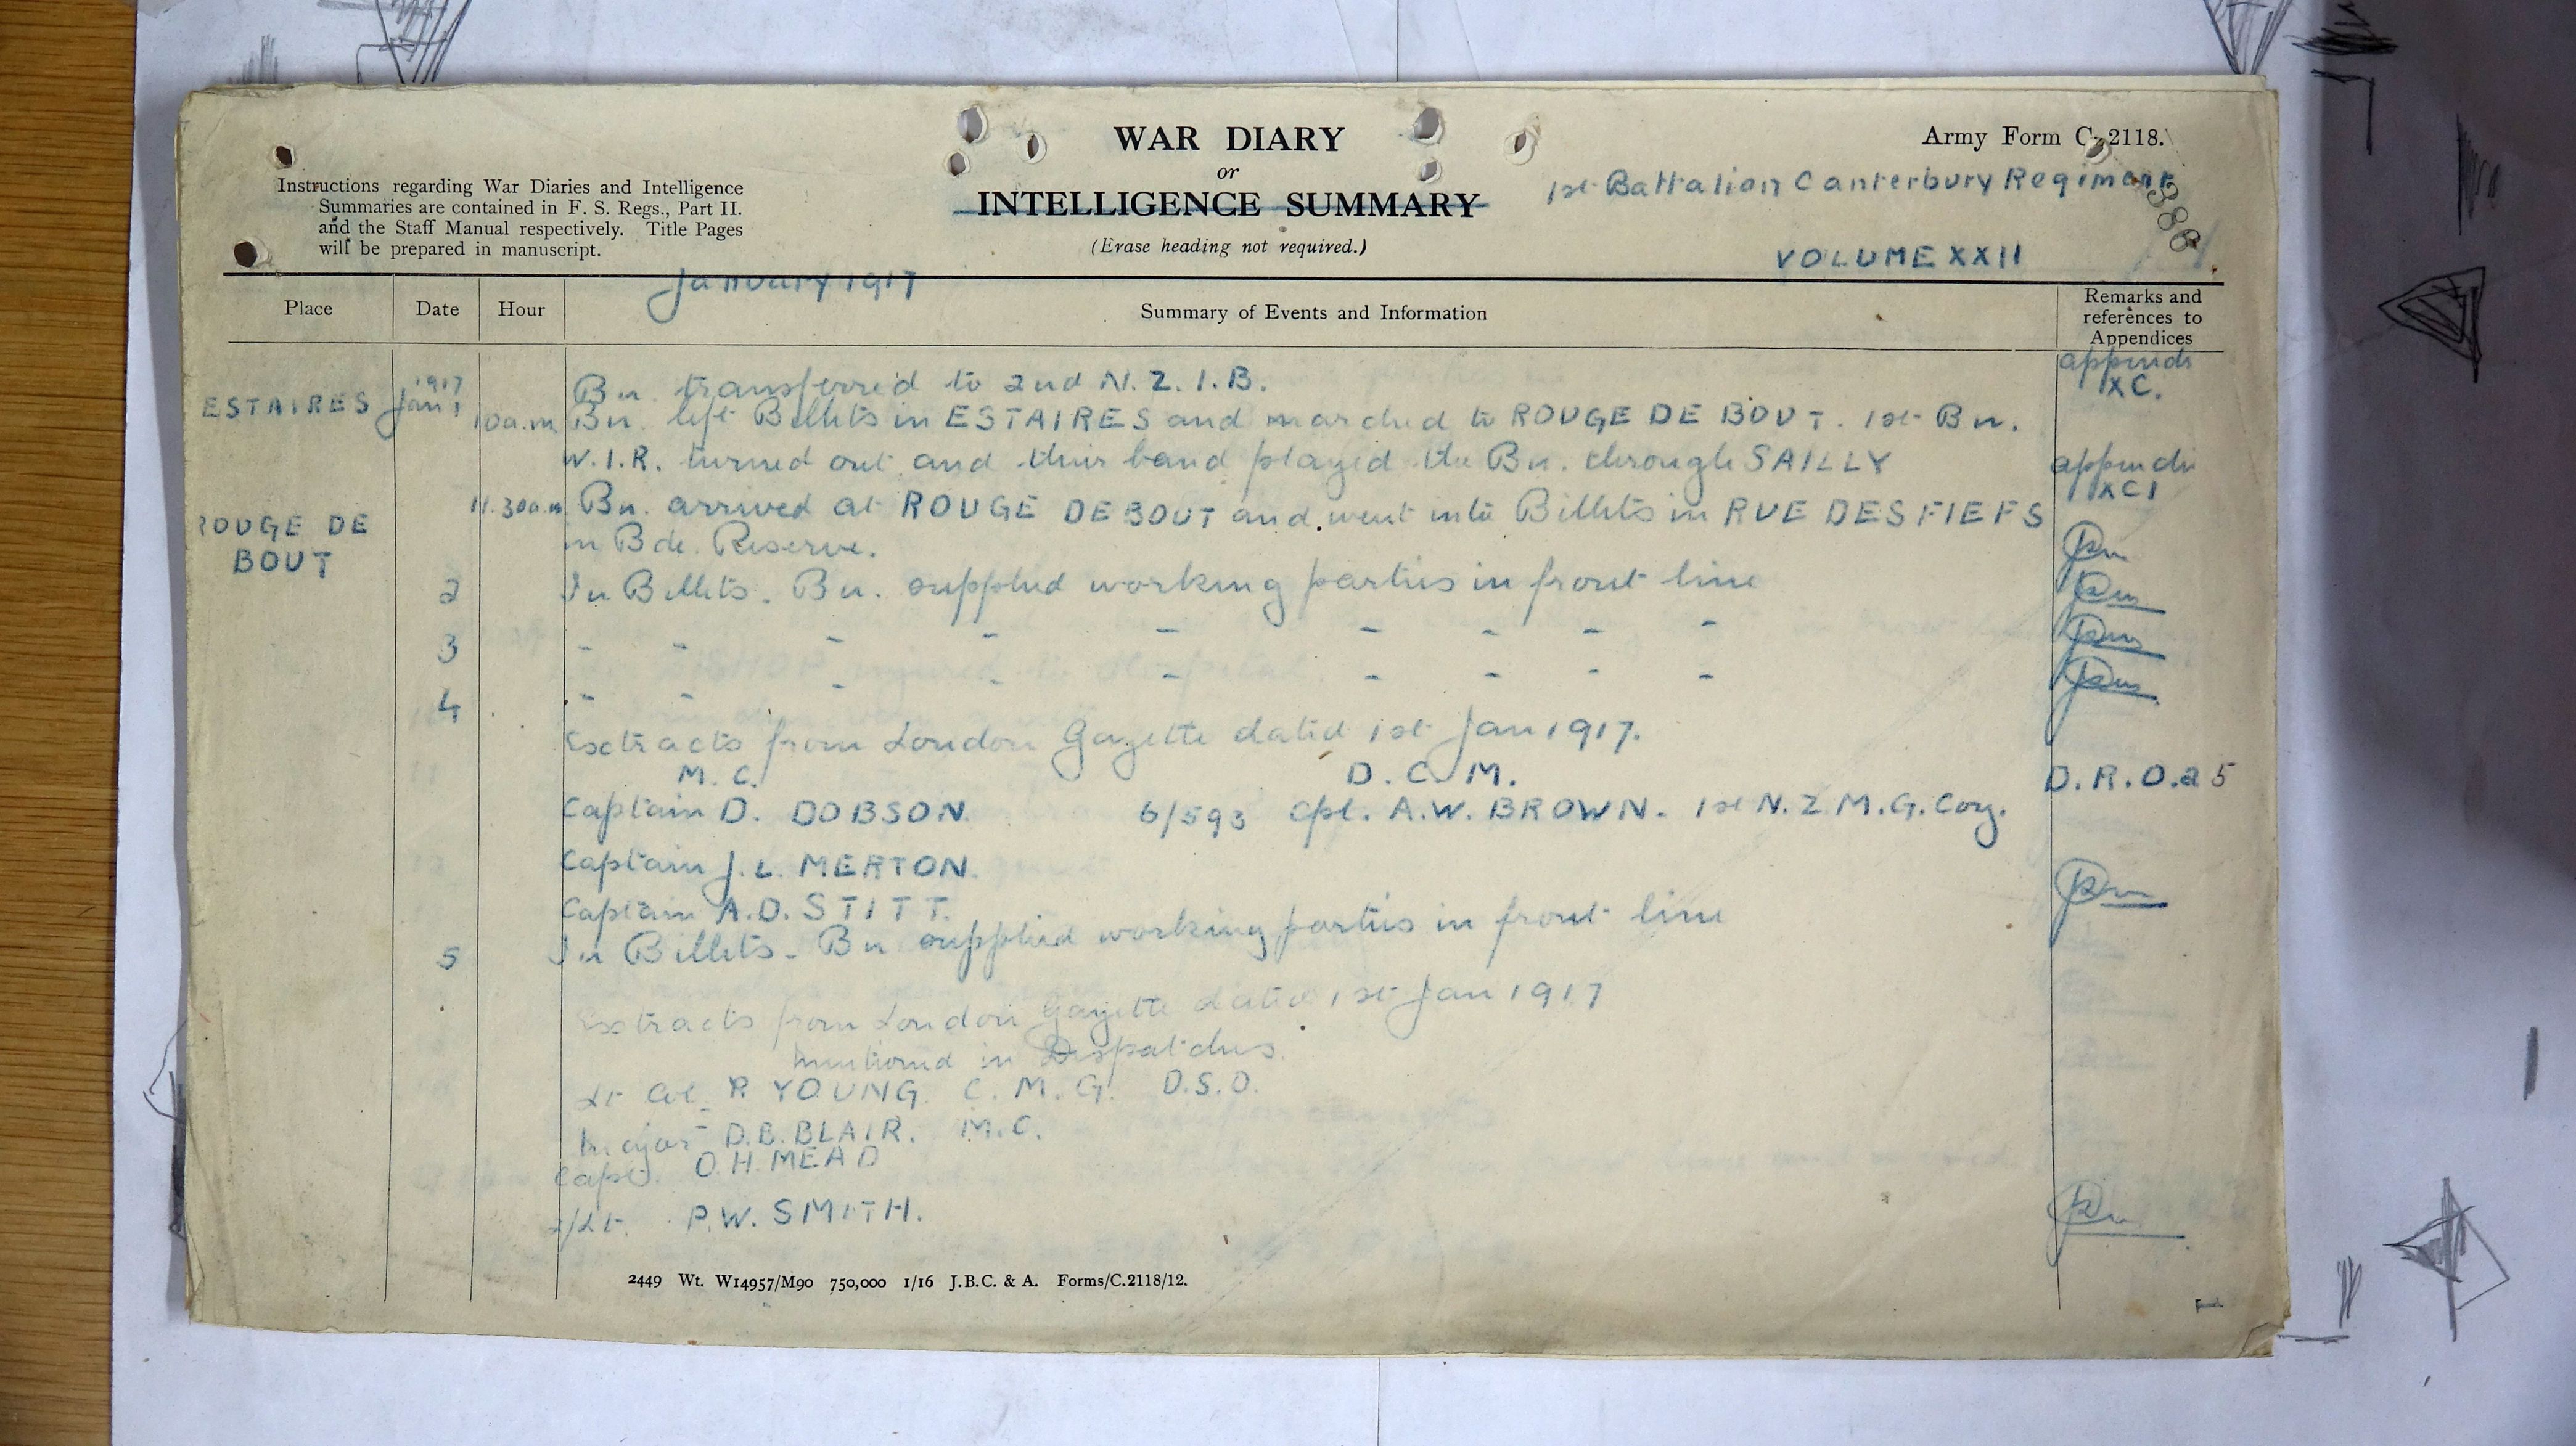 WAR DIARY
or
INTELLIGENCE SUMMARY
(Erase heading not required.)
Army Form C. 2118.
Instructions regarding War Diaries and Intelligence
Summaries are contained in F. S. Regs., Part II.
and the Staff Manual respectively. Title Pages
will be prepared in manuscript.
1st Battalion Canterbury Regiment
388
VOLUME XXII
January 1917
Place Date Hour Summary of Events and Information Remarks and references to Appendices
1917 Bn. transferred to 2nd N.Z.I.B. XC.
ESTAIRES Jan 1 10a.m. Bn. left Billets in ESTAIRES and marched to ROUGE DE BOUT. 1st Bn.
W.I.R. turned out and their band played the Bn. through SAILLY XCI
11.30a.m Bn. arrived at ROUGE DE BOUT and went into Billets in RUE DES FIEFS
ROUGE DE BOUT in Bde. Reserve.
2 In Billets. Bn. supplied working parties in front line
3 - - - - - - - - -
4 - - - - - - - - -
Extracts from London Gazette dated 1st Jan 1917.
M.C. D.C.M. D.R.O.25
Captain D. DOBSON. 6/593 Cpl. A.W. BROWN. 1st N.Z M.G. Coy.
Captain J.L. MERTON.
Captain A.D. STITT.
5 In Billets. Bn supplied working parties in front line
Extracts from London Gazette dated 1st Jan 1917
Mentioned in Despatches.
Lt Col R YOUNG. C.M.G. D.S.O.
Major D.B. BLAIR. M.C.
Capt. O.H. MEAD
2/Lt. P.W. SMITH.
2449 Wt. W14957/M90 750,000 1/16 J.B.C. & A. Forms/C.2118/12.